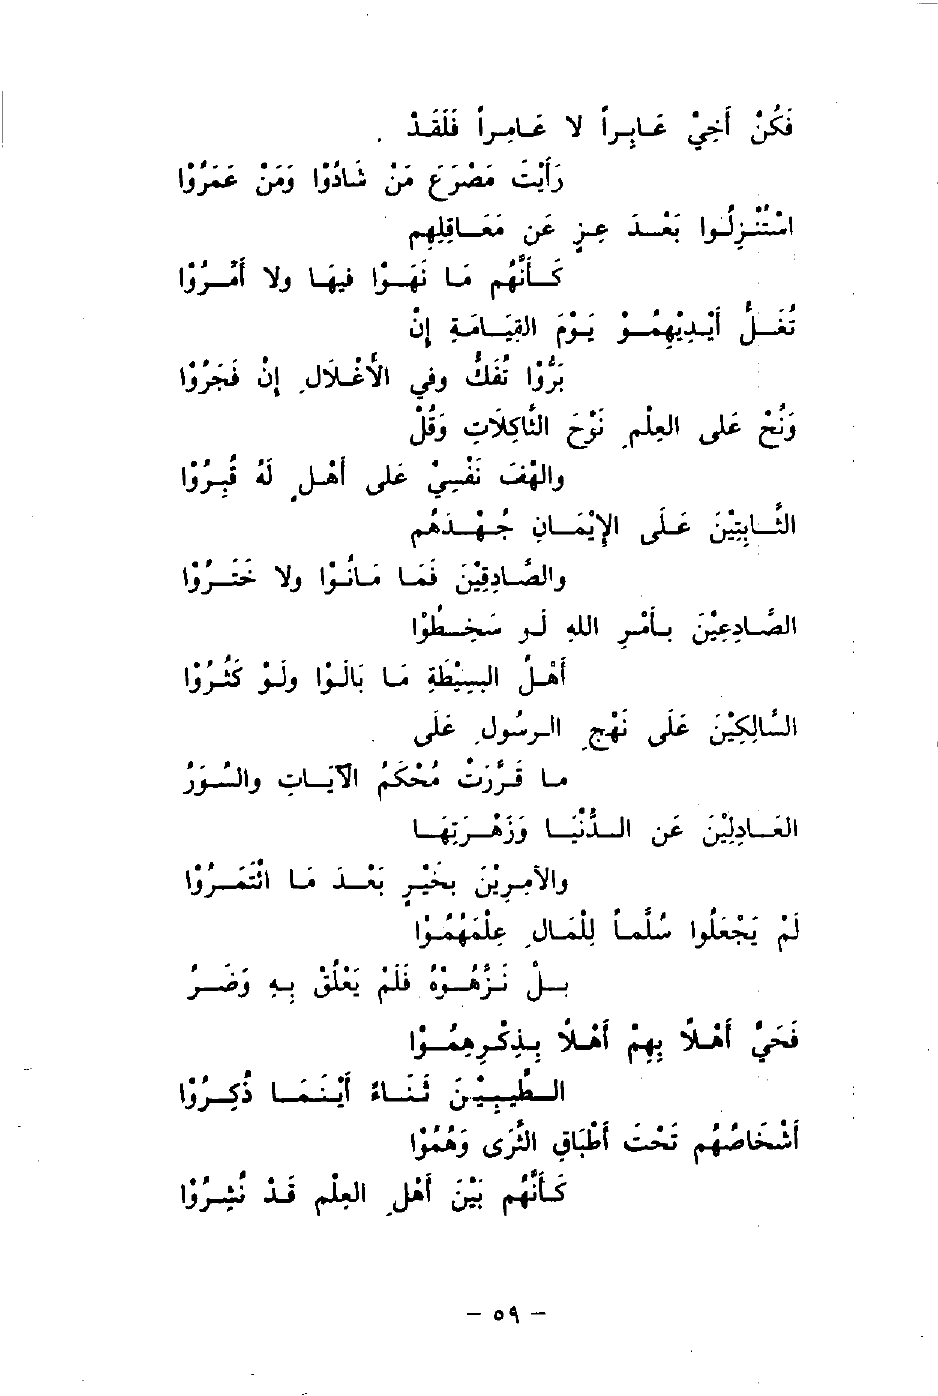 فَكُنْ أَخِيْ عَابِراً لا عَامِراً فَلَقَدْ
رَأَيْتَ مَصْرَعَ مَنْ شَادُوْا وَمَنْ عَمَرُوْا
اسْتُنْزِلُوا بَعْدَ عِزٍ عَن مَعَاقِلِهِم
كَأَنَّهُم مَا نَهَوْا فيهَا ولا أَمَرُوْا
تُغَلُّ أَيْدِيْهِمُو يَوْمَ القِيَامَةِ إنْ
بَرُّوْا تُفَكُّ وفي الأَغْلَالِ إنْ فَجَرُوْا
وَنُحْ عَلى العِلْمِ نَوْحَ الثَّاكِلاَتِ وَقُلْ
والهْفَ نَفْسِيْ عَلى أَهْلٍ لَهُ قُبِرُوْا
الثَّابِتِيْنَ عَلَى الإيْمَانِ جُهْدَهُم
والصَّادِقِيْنَ فَمَا مَانُوْا ولا خَتَرُوْا
الصَّادِعِيْنَ بأَمْرِ اللهِ لَو سَخِطُوْا
أَهْلُ البسِيْطَةِ مَا بَالَوْا ولَوْ كَثُرُوْا
السَّالِكِيْنَ عَلَى نَهْجِ الرسُولِ عَلَى
ما قَرَّرَتْ مُحْكَمُ الآيَاتِ والسُّوَرُ
العَادِلِيْنَ عَنِ الدُّنْيَا وَزَهْرَتِهَا
والآمِرِيْنَ بخَيْرٍ بَعْدَ مَا ائْتَمَرُوْا
لَمْ يَجْعَلُوا سُلَّماً لِلْمَالِ عِلْمَهُمُوْا
بَلْ نَزَّهُوْهُ فَلَمْ يَعْلَقْ بِهِ وَضَرُ
فَحَيْ أَهْلاً بِهِمْ أَهْلاً بِذِكْرِهِمُوْا
الطَّيِبِيْنَ ثَنَاءً أَيْنَمَا ذُكِرُوْا
أَشْخَاصُهُم تَحْتَ أَطْبَاقِ الثَّرَى وَهُمُوْا
كَأَنَّهُم بَيْنَ أَهْلِ العِلْمِ قَدْ نُشِرُوْا
– ٥٩ –